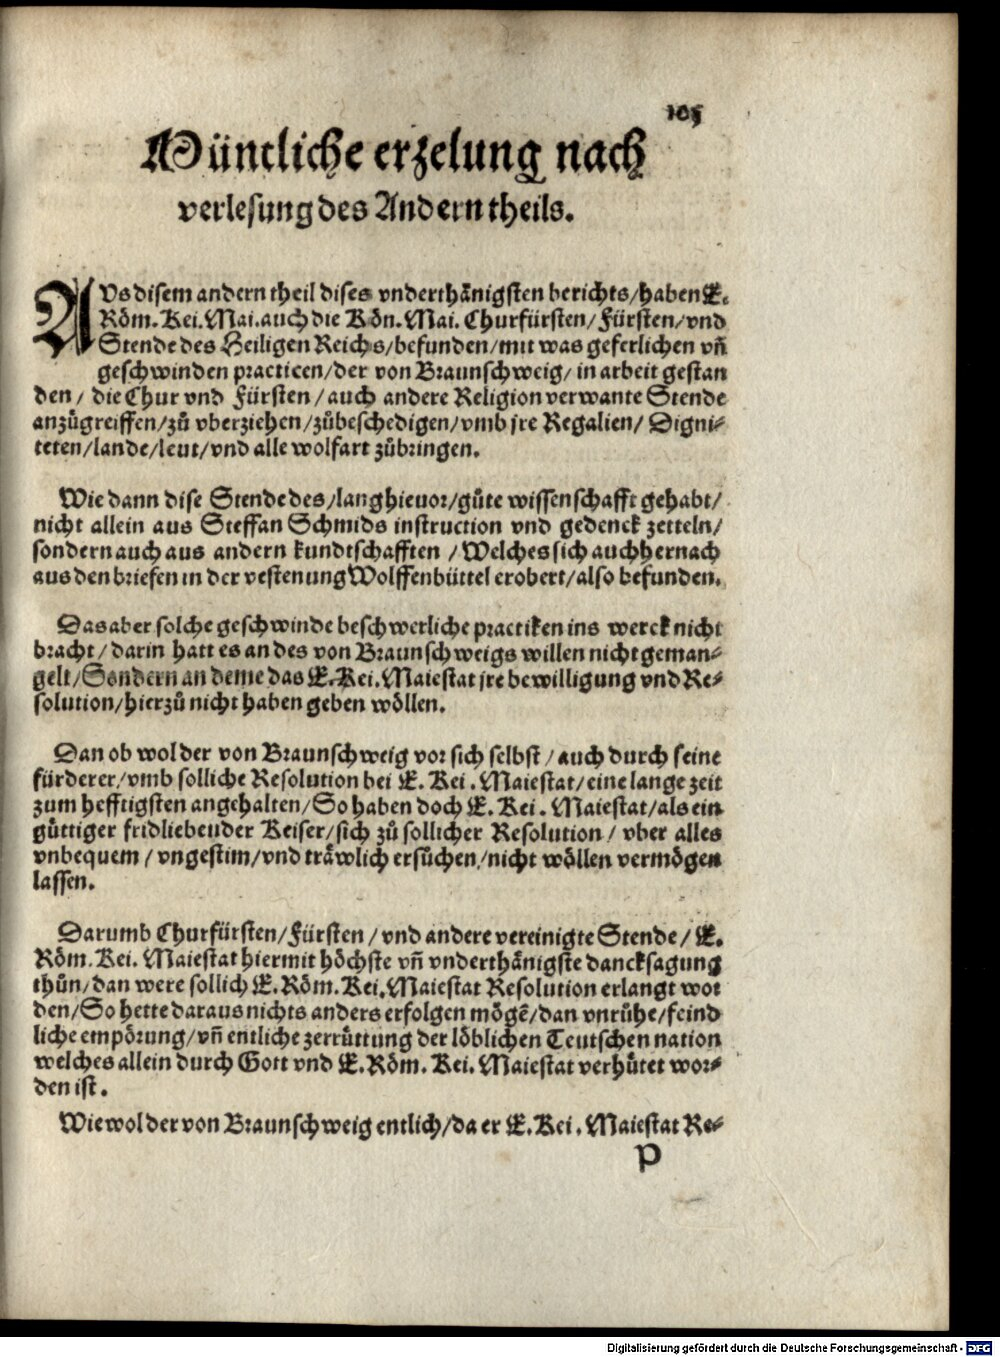 105
Müntliche erzelung nach
verlesung des Andern theils.
AVs disem andern theil dises vnderthänigsten berichts/haben E.
Röm. Kei. Mai. auch die Kön. Mai. Churfürsten/Fürsten/vnd
Stende des Heiligen Reichs/befunden/mit was geferlichen vñ
geschwinden practicen/der von Braunschweig/in arbeit gestan
den/ die Chur vnd Fürsten/auch andere Religion verwante Stende
anzůgreiffen/zů vberziehen/zůbeschedigen/vmb jre Regalien/ Digni⸗
teten/lande/leut/vnd alle wolfart zůbringen.
Wie dann dise Stende des/lang hieuor/gůte wissenschafft gehabt/
nicht allein aus Steffan Schmids instruction vnd gedenck zetteln/
sondern auch aus andern kundtschafften /Welches sich auch hernach
aus den briefen in der vestenung Wolffenbüttel erobert/also befunden.
Das aber solche geschwinde beschwerliche practiken ins werck nicht
bracht/darin hatt es an des von Braunschweigs willen nicht geman⸗
gelt/Sondern an deme das E. Kei. Maiestat jre bewilligung vnd Re⸗
solution/hierzů nicht haben geben wöllen.
Dan ob wol der von Braunschweig vor sich selbst/auch durch seine
fürderer/vmb solliche Resolution bei E. Kei. Maiestat/eine lange zeit
zum hefftigsten angehalten/So haben doch E. Kei. Maiestat/als ein
güttiger fridliebender Keiser/sich zů sollicher Resolution/ vber alles
vnbequem/vngestim/vnd träwlich ersůchen/nicht wöllen vermögen
lassen.
Darumb Churfürsten/Fürsten/vnd andere vereinigte Stende/ E.
Röm. Kei. Maiestat hiermit höchste vñ vnderthänigste dancksagung
thůn/dan were sollich E. Röm. Kei. Maiestat Resolution erlangt wor
den/So hette daraus nichts anders erfolgen mögẽ/dan vnrůhe/feind
liche empörung/vñ entliche zerrüttung der löblichen Teutschen nation
welches allein durch Gott vnd E. Röm. Kei. Maiestat verhütet wor⸗
den ist.
Wiewol der von Braunschweig entlich/da er E. Kei. Maiestat Re⸗
P
Digitalisierung gefördert durch die Deutsche Forschungsgemeinschaft - DFG